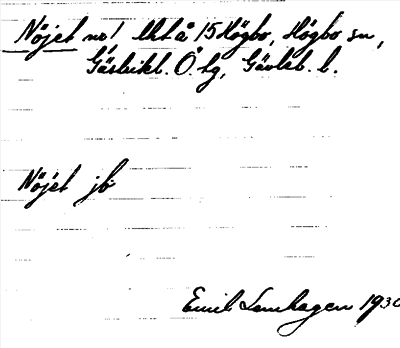 Nöjet no 1 Utå 15 Högbo, Högbo sn,
Gästrikl. Ö. tg, Gävleb. l.
Nöjet jb
Emil Lenhagen 1930